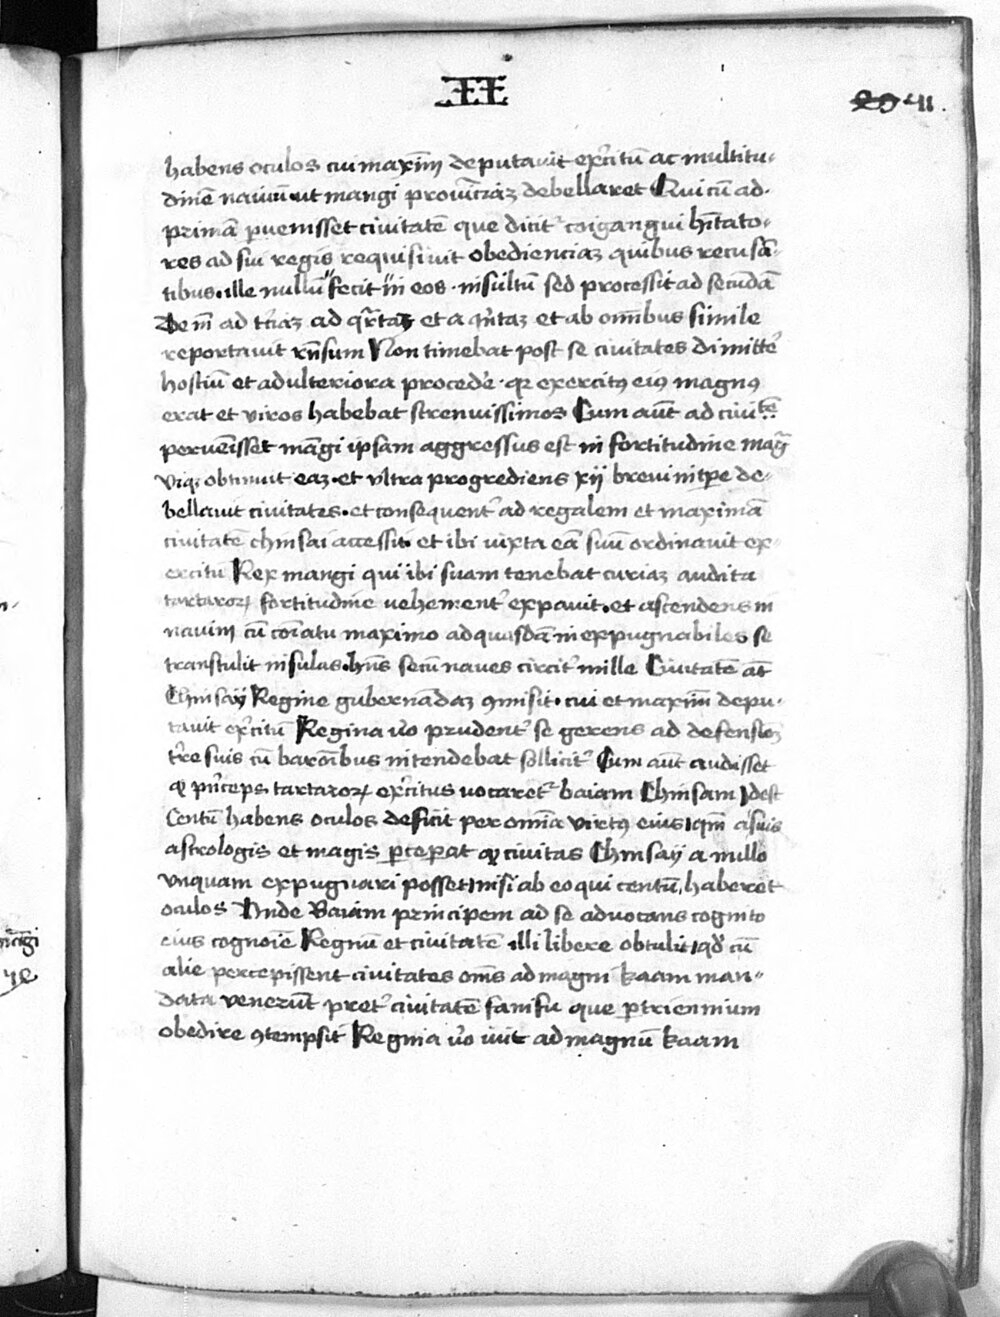 II
habens oculos cui maxīm deputavit exc̄itū ac multitu-
dinē naviū ut mangi provīciaȝ debellaret Qui cū ad
primā puenisset civitatē que dicit' coigangui hītato-
res ad sui regis requisivit obedienciaȝ quibus recusā-
tibus ille nullū fecit in eos insultū sed processit ad secūdā
Deīn ad t'ciaȝ ad q̄rtaȝ et a q̄ntaȝ et ab omībus simile
reportavit rn̄sum Non timebat post se civitates dimitte'
hostiū et ad ulteriora procede' qz exercitꝰ eiꝰ magnꝰ
erat et viros habebat strenuissimos Cum aūt ad civitē
pervēisset māgi ipsam aggressus est in fortitudine mag
viqz obtinuit eaȝ et ultra progrediens xij brevi in tp̄e de-
bellavit civitates et consequent' ad regalem et maximā
civitatē chinsai accessit et ibi iuxta eā suū ordinavit ex-
ercitū Rex mangi qui ibi suam tenebat curiaȝ audita
tartaroꝝ fortitudine vehement' expavit et ascendens in
navim cū comatu maximo ad quasdā inexpugnabiles se
transtulit insulas hn̄s secū naves circit' mille Civitatē aūt
Chinsaÿ Regine gubernādaȝ ꝯmisit cui et maxīm depu-
tavit exc̄itū Regina v̄o prudent' se gerens ad defensioȝ
t're suis cū baronībus intendebat sollicit' Cum aūt audisset
qꝫ p̄nceps tartaroꝝ exc̄itus vocaret' baiam Chinsam Idest
Centū habens oculos deficit per omīa virtꝰ eius qm̄ a suis
astrologis et magis p̄cep̄at qꝫ civitas Chinsaÿ a nullo
vnquam expugnari posset nisi ab eo qui centū haberet
oculos Unde Baiam principem ad se advocans cognito
eius cognoīe Regnū et civitatē illi libere obtulit qd' cū
alie percepissent civitates oms̄ ad magni kaam man-
data venerūt pret' civitatē sanifu que ꝑ triennium
obedire ꝯtempsit Regina v̄o ivit ad magnū kaam